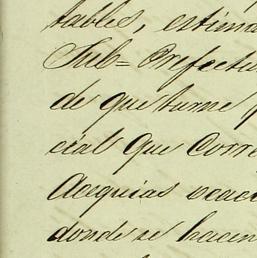 tables, estima
Sub=Prefectu
de que turne
cial que Corre
Acequias
donde se hacen